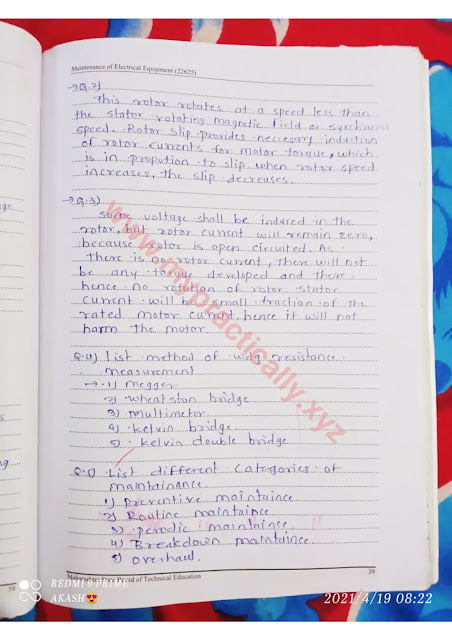 Maintenance of Electrical Equipment (22625)
→ Q.2)
This rotor rotates at a speed less than
the stator rotating magnetic field or synchronus
speed. Rotor slip provides necessary induction
of rotor currents for motor torque, which
is in propotion to slip when rotor speed
increases, the slip decreases.
→ Q.3)
Some voltage shall be induced in the
rotor, but rotor current will remain zero,
because rotor is open circuited. As
there is no rotor current, there will not
be any torque developed and there
hence no rotation of rotor stator
current will be small fraction of the
rated motor current. hence it will not
harm the motor.
Q.4) List method of wdg resistance
measurement
→ 1) megger
2) wheatston bridge
3) multimeter
4) kelvin bridge
5) kelvin double bridge
Q.5) List different Categories of
maintainance
1) preventive maintaince
2) Routine maintaince
3) perodic maintaince
4) Breakdown maintaince
5) overhaul.
39
Board of Technical Education
38
www.mypractically.xyz
REDMI 9 PRIME
AKASH😍
2021/4/19 08:22